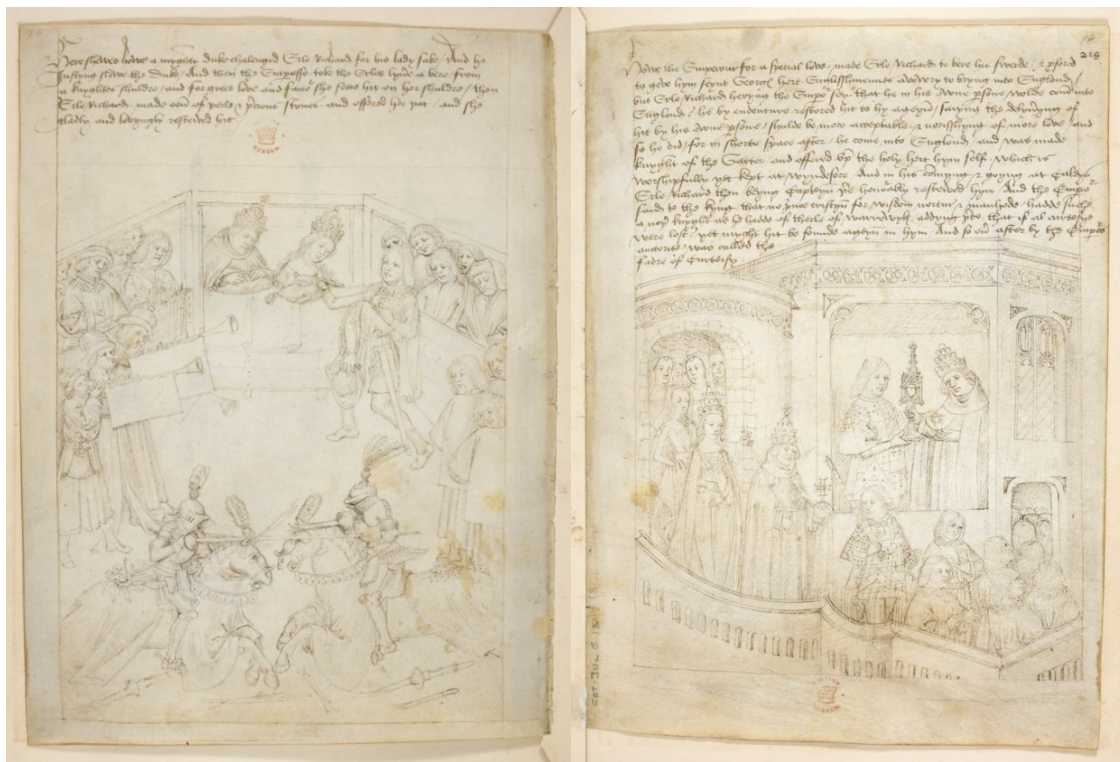 Here shewes howe a myghty duke chalenged Erle Richard for his lady sake / And in
Justyng slewe the Duke / And then the Empresse toke the Erles lyvere a bere from
a knyghtes shuldre / and for greet love and fauor she sette hit on her shuldre / Then
Erle Richard made oon of perle & precious stones / and offerd her that / and she
gladly and lovyngly resceived hit
218
Howe the Emperour for a special love / made Erle Richard to bere his swerde / & profred
to geve hym seynt Georges hert Englisshmennes advowry to bryng into England /
but Erle Richard heryng the Empor sey that he in his owne psone wolde com into
England / he by endenture restored hit to hy ageyn / saying the delyveryng of
hit by his owne psone / shulde be more acceptable & norisshyng of more love / and
so he did / for in shorte space after / he come into England / and was made
knyght of the Garter and offred up the holy hert hym self / which is
worshipfully yet kept at Wyndesore And in his comyng & goyng at Caleys
Erle Richard then beyng Capteyn there honorably resceived hym And the Empor
said to the kyng that no prince cristyn for wisdom norture & manhode / hadde suche
a nother knyght as he hadde of therle of Warrewyk / addyng therto that if al curtesye
were lost / yet myght hit be founde ageyn in hym And so ever after by the Emperors
auctorite was called the
fadre of Curteisy
COT JUL E IV